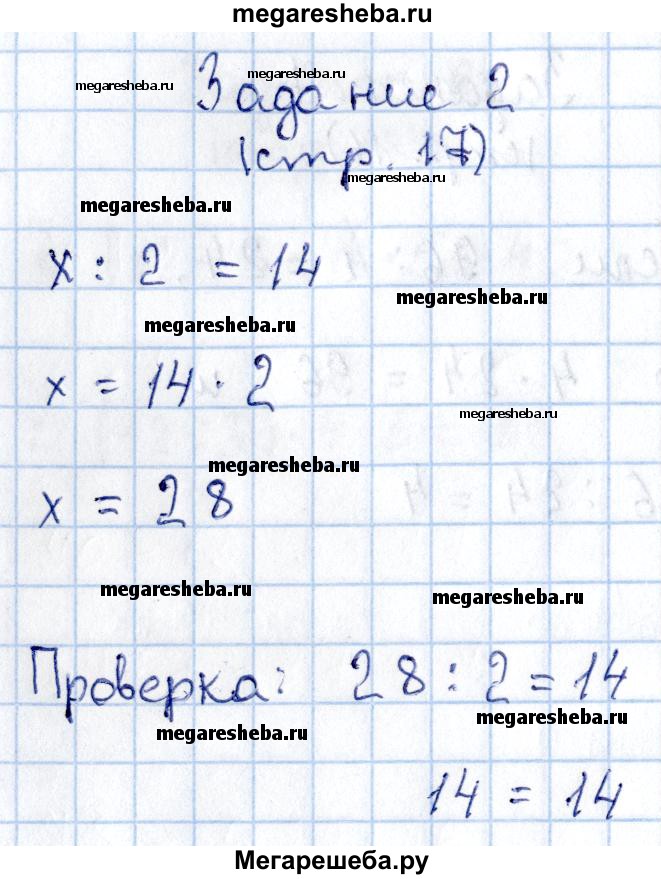 megaresheba.ru
megaresheba.ru
megaresheba.ru
Задание 2
(стр. 17)
megaresheba.ru
megaresheba.ru
x : 2 = 14
megaresheba.ru
megaresheba.ru
x = 14 · 2
megaresheba.ru
megaresheba.ru
x = 28
megaresheba.ru
megaresheba.ru
Проверка: 28 : 2 = 14
megaresheba.ru
megaresheba.ru
14 = 14
Мегарешеба.ру